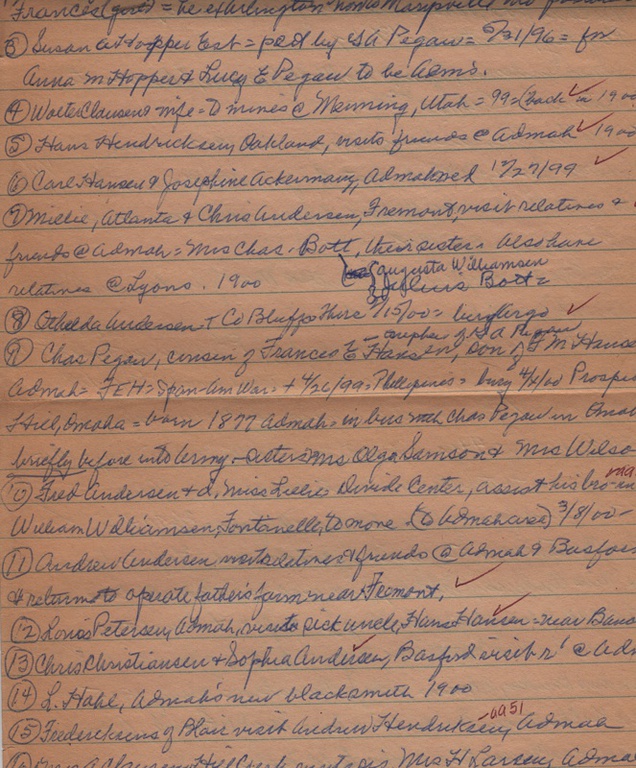 Frances
③ Susan A Hopper Est = pet by S A Pegau = 8/31/96 = for
Anna M Hopper & Lucy E Pegau to be Adm's.
④ Walter Clausen & wife = to mines @ Manning, Utah = 99 = (back in 1900
⑤ Hans Hendricksen, Oakland, visits friends @ Admah 1900
⑥ Carl Hansen & Josephine Ackermann, Admah wed 12/27/99
⑦ Millie, Atlanta & Chris Andersen, Fremont, visit relatives &
friends @ Admah = Mrs Chas. Bott, their sister. Also have
relatives @ Lyons. 1900 Augusta Williamsen
Bott =
⑧ Andersen + Co Bluffs 3/15/00 = bury Argo
nephew of S A Pegau
⑨ Chas Pegau, cousin of Frances E Hansen, son of J M Hanse
Admah = FEH = Span-Am War = + 4/26/99 = Phillipines = bury 4/4/00 Prospec
Hill, Omaha = born 1877 Admah = in bus with Chas Pegau in Omah
briefly before into Army - sisters Mrs Olga Samson & Mrs Wilso
⑩ Fred Andersen & d, Miss Lillie, Divide Center, assist his bro-in
William Williamsen, Fontanelle, to move (to Admah area) 3/8/00 -
⑪ Andrew Andersen visits relatives & friends @ Admah & Basford
& returns to operate father's farm near Fremont.
⑫ Louis Petersen, Admah, visits sick uncle, Hans Hansen = near Banc
⑬ Chris Christiansen & Sophia Andersen, Basford visit r' @ Adm
⑭ L. Hahl, Admah's new blacksmith 1900
⑮ Fredericksens of Blair visit Andrew Hendricksen, Admah
aa51
Clausen, Hill Creek visits sis Mrs H Larsen, Admah